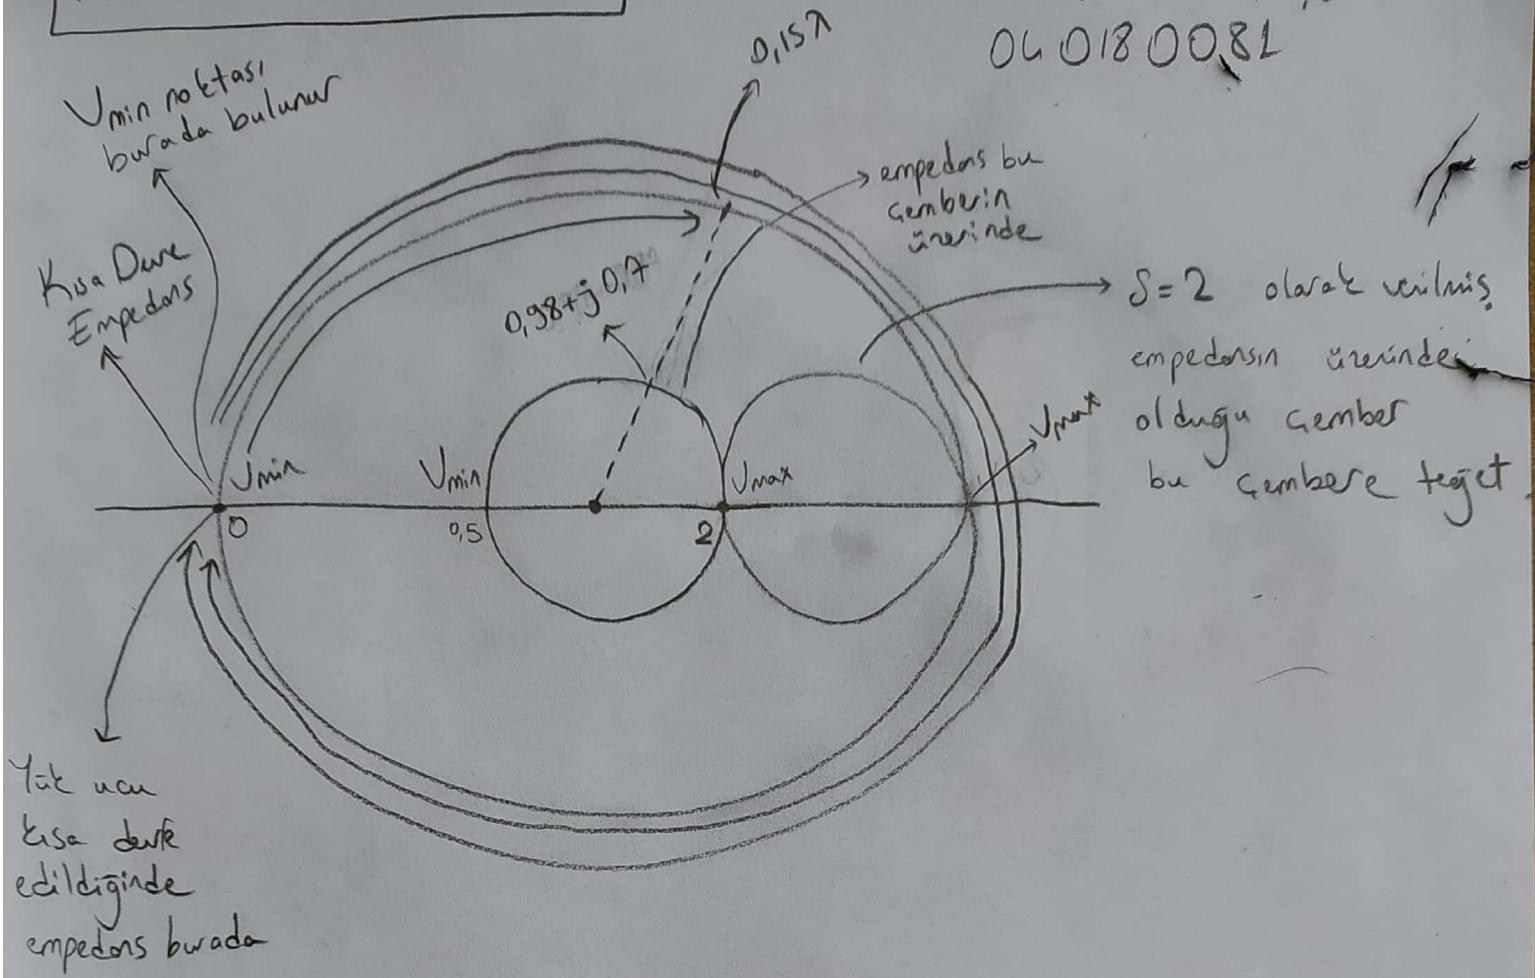 040180081
0,15λ
Vmin noktası
burada bulunur
empedans bu
çemberin
üzerinde
Kısa Devre
Empedans
0,98+j0,7
S=2 olarak verilmiş.
empedansın üzerinde
olduğu çember
bu çembere teğet.
Vmax
Vmin
Vmin
Vmax
0
0,5
2
Yük ucu
kısa devre
edildiğinde
empedans burada